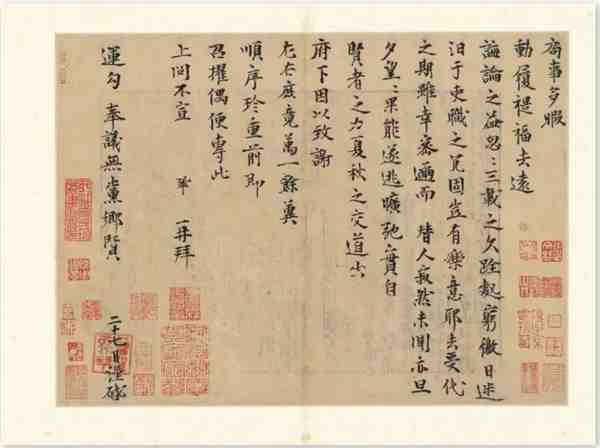 局事多暇
動履禔福去遠
誨論之益忽〻三載之久跧處窮徼日迷
汨于吏職之冗固豈有樂意耶去受代
之期雖幸密邇而替人寂然未聞亦旦
夕望〻果能遂逃曠弛實自
賢者之力夏秋之交道出
府下因以致謝
左右庶竟萬一餘冀
順序珍重前即
召擢偶便專此
上問不宣 鞏 再拜
運勾奉議無黨鄉賢
二十七日謹啓